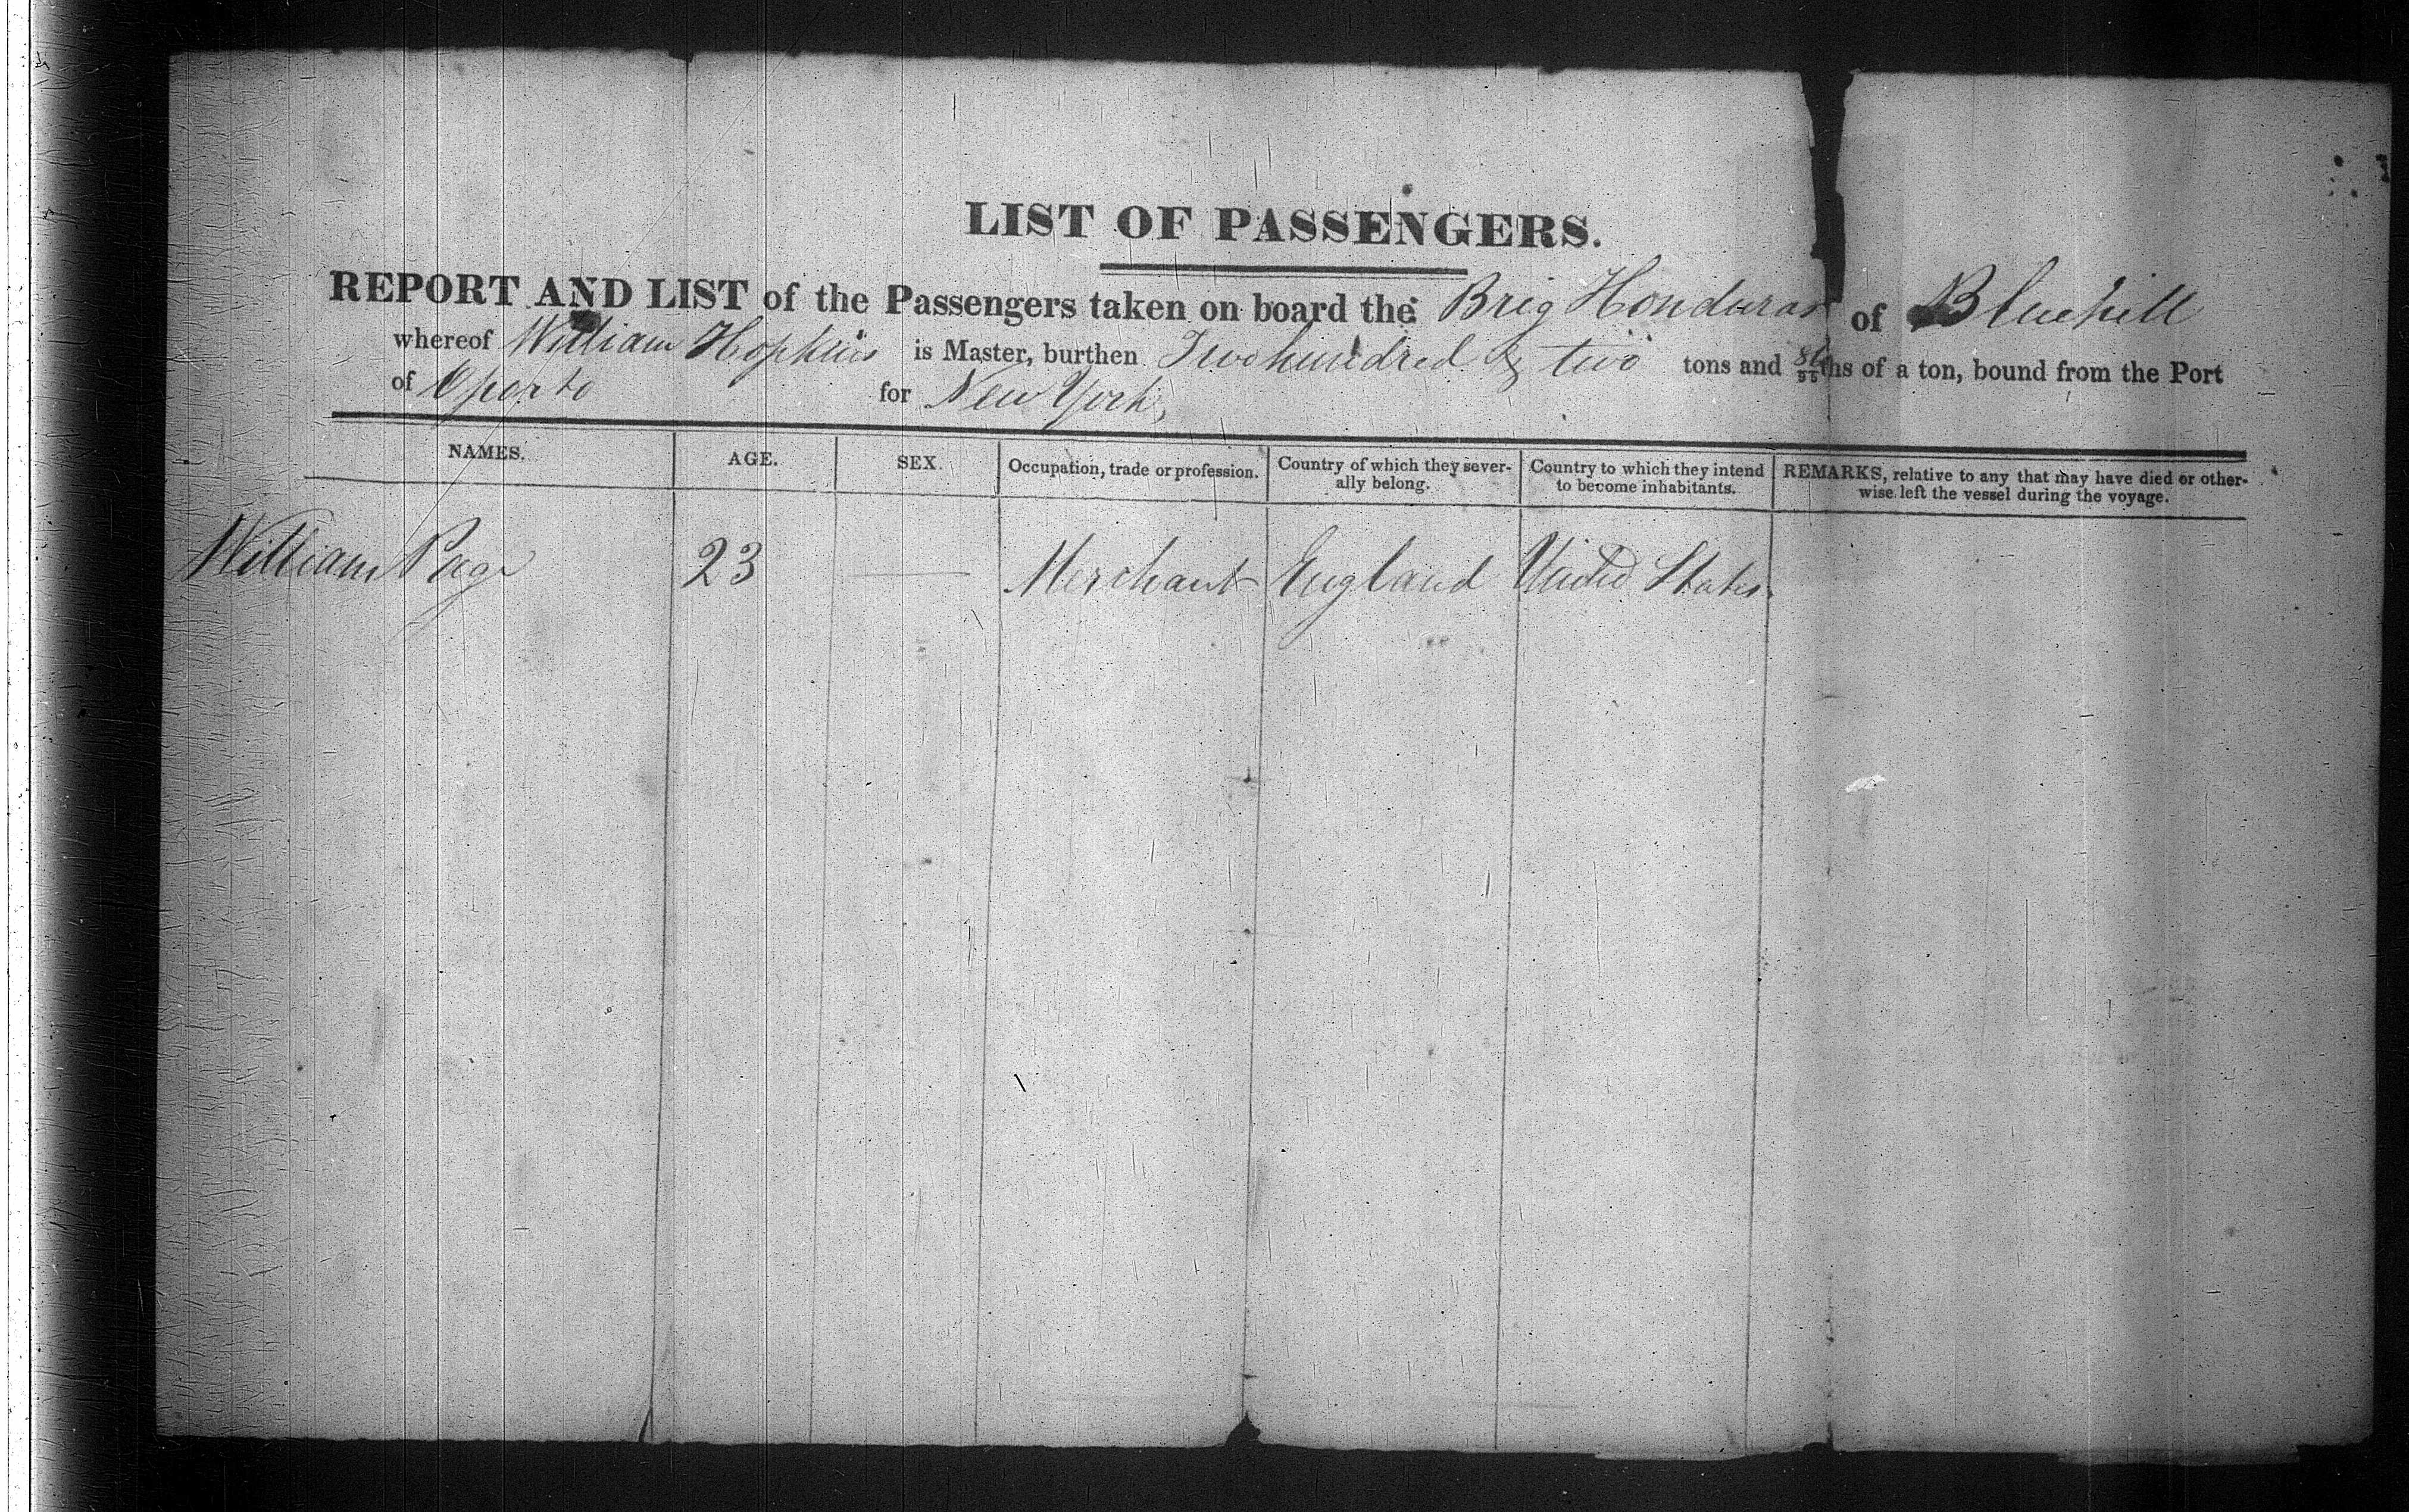 LIST OF PASSENGERS.
REPORT AND LIST of the Passengers taken on board the Brig Honduras of Bluehill
whereof William Hopkins is Master, burthen Two hundred & two tons and ths of a ton, bound from the Port
of Oporto for New York,
NAMES. AGE. SEX. Occupation, trade or profession. Country of which they sever- Country to which they intend REMARKS, relative to any that may have died or other-
ally belong. to become inhabitants. wise left the vessel during the voyage.
William Page 23 — Merchant England United States.